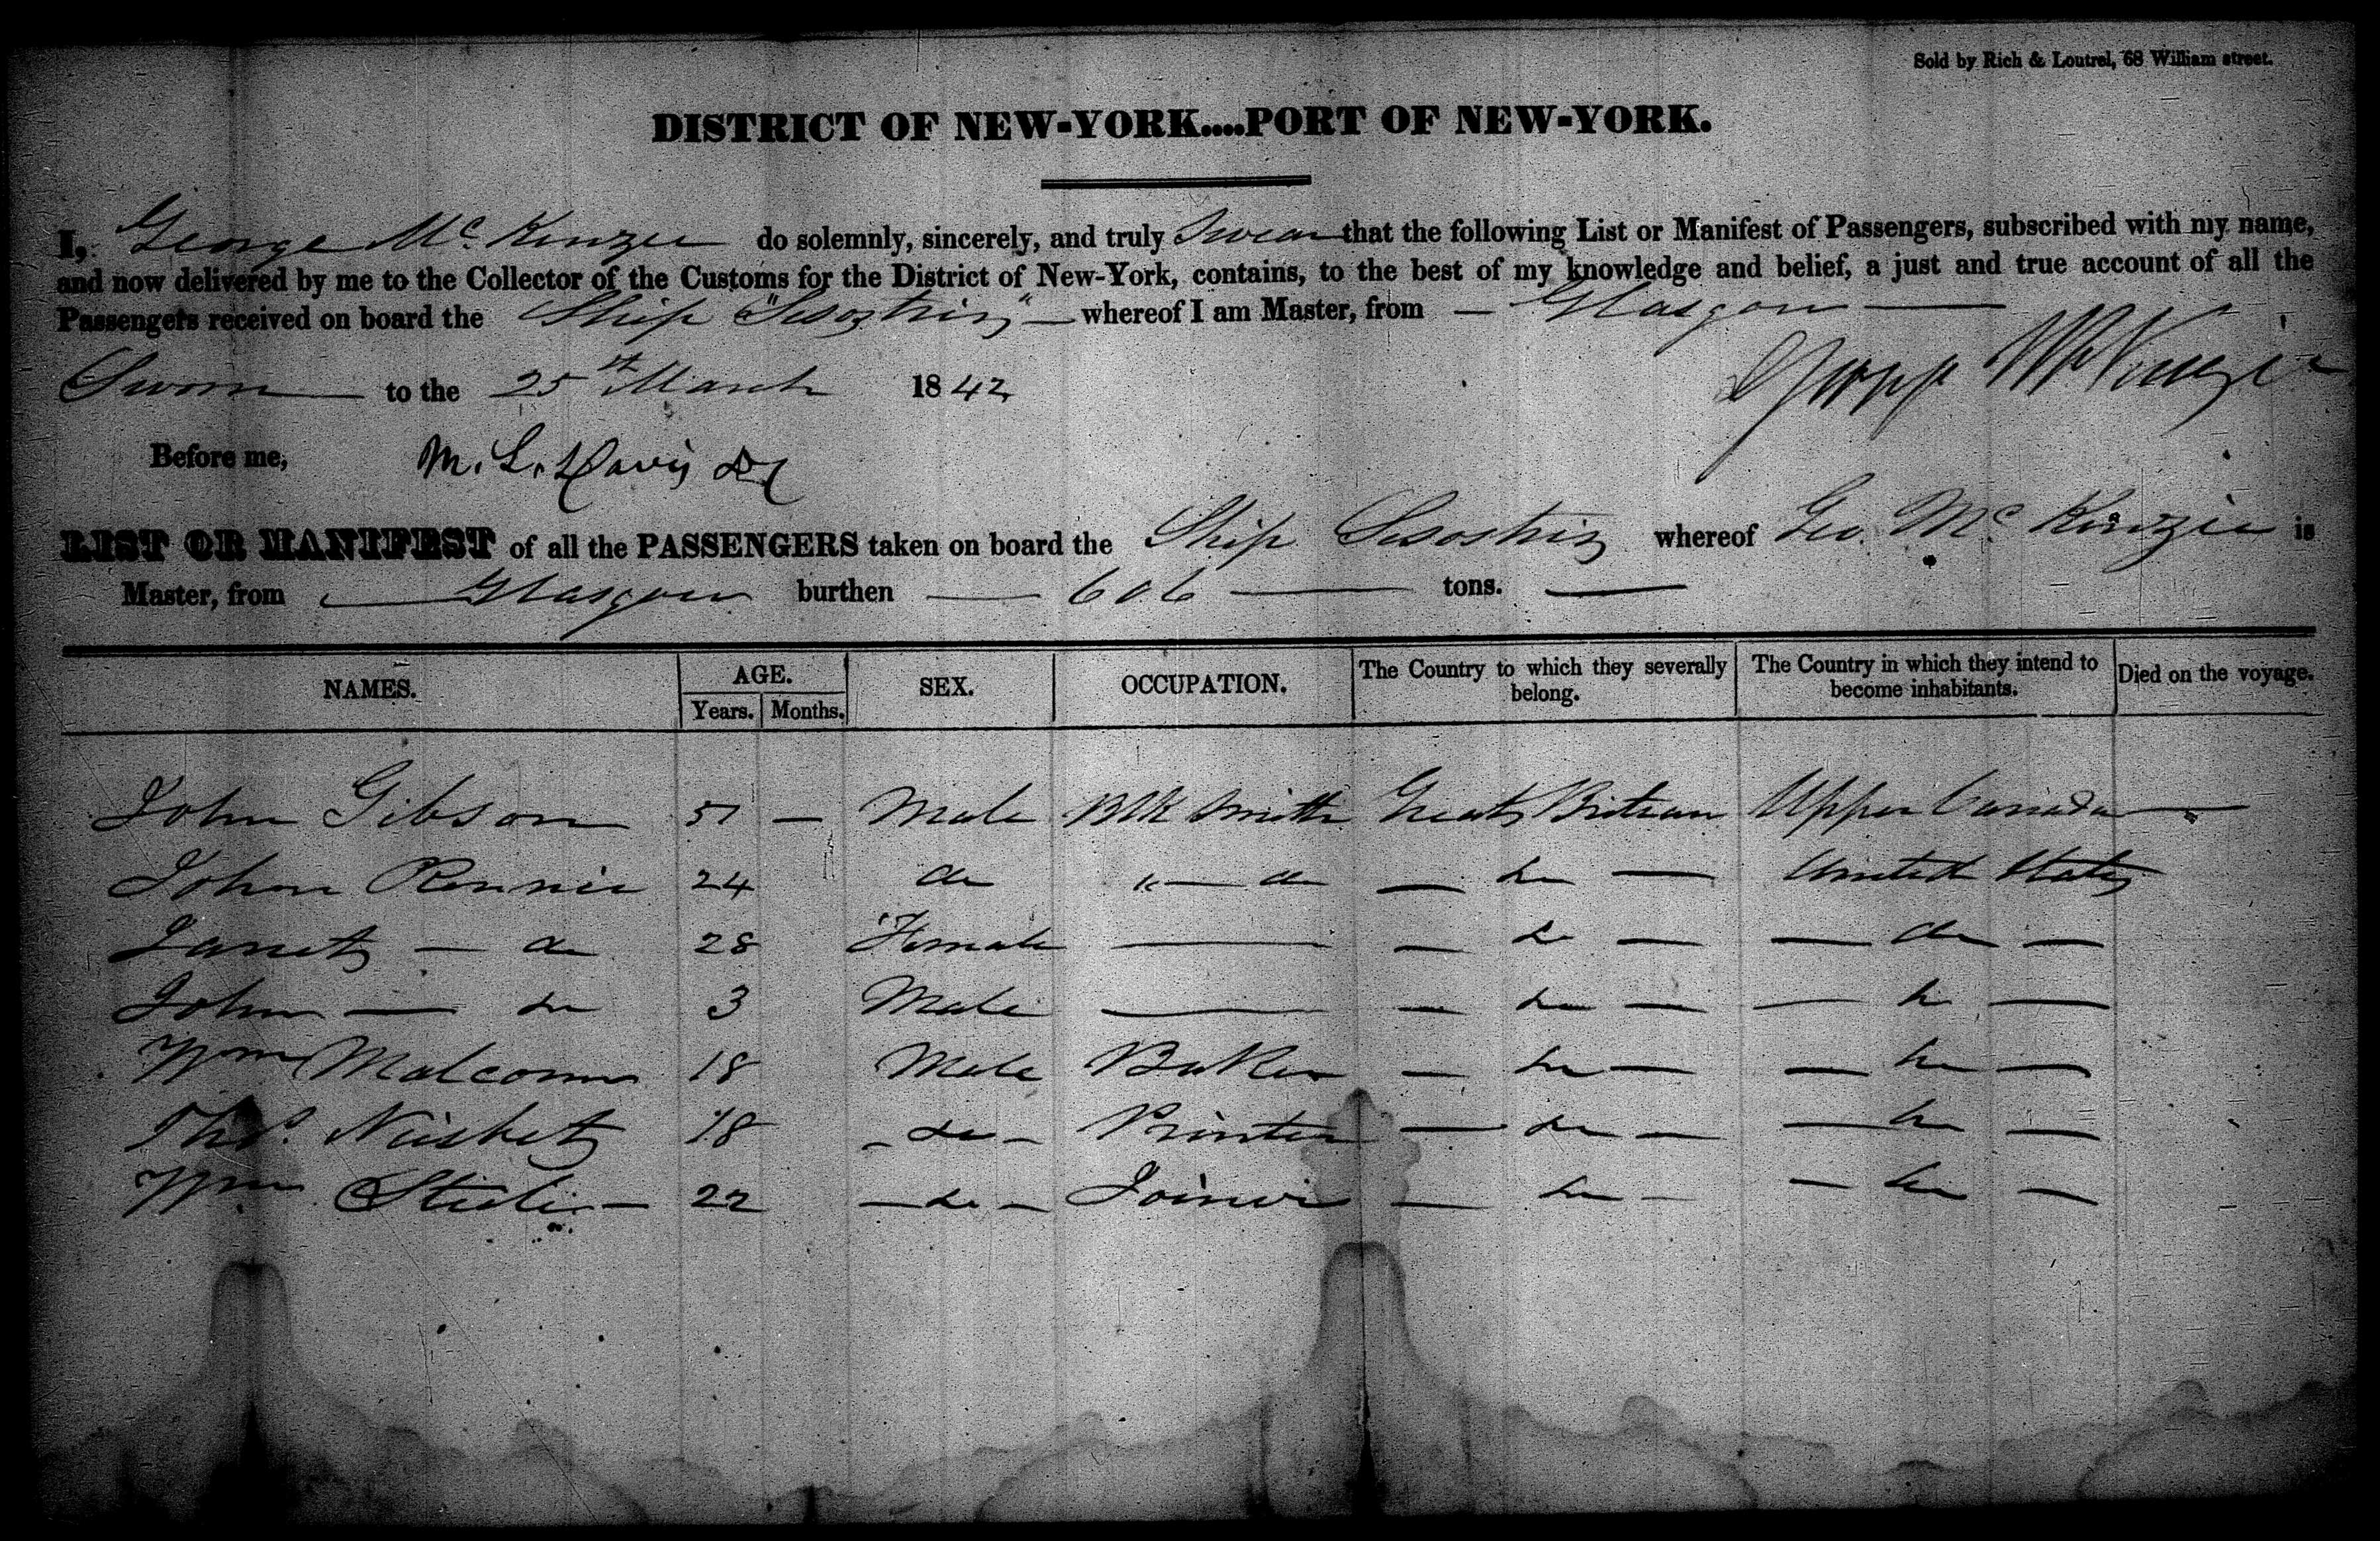 Sold by Rich & Loutrel, 68 William street.
DISTRICT OF NEW-YORK....PORT OF NEW-YORK.
I, George Mc. Kenzie do solemnly, sincerely, and truly Swear that the following List or Manifest of Passengers, subscribed with my name,
and now delivered by me to the Collector of the Customs for the District of New-York, contains, to the best of my knowledge and belief, a just and true account of all the
Passengers received on board the Ship "Sesostris" — whereof I am Master, from — Glasgow —
Sworn — to the 25th March 1842
George McKenzie
Before me, M. L. Davis
LIST OR MANIFEST of all the PASSENGERS taken on board the Ship Sesostris whereof Geo. Mc Kenzie is
Master, from — Glasgow burthen — 606 — tons. —
NAMES. AGE. Years. Months. SEX. OCCUPATION. The Country to which they severally belong. The Country in which they intend to become inhabitants. Died on the voyage.
John Gibson 51 — Male Blk Smith Great Britain Upper Canada —
John Rennie 24 do " — do — do — United States
Janet — do 28 Female — — do — — do —
John — do 3 Male — — do — — do —
Wm Malcom 18 Male Baker — do — — do —
Thos. Nisbet 18 - do - Printer — do — — do —
Wm Steele — 22 — do — Joiner — do — — do —